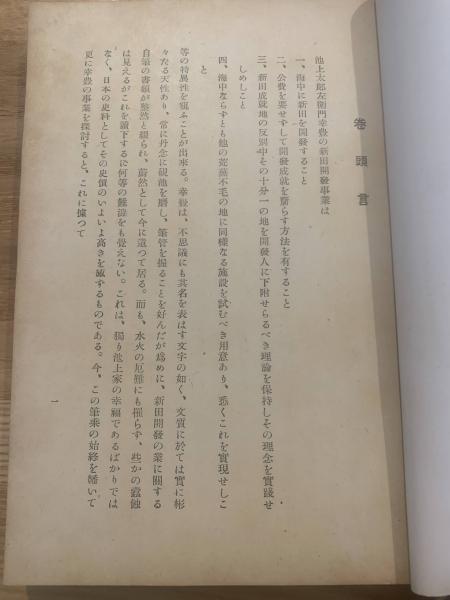 卷頭言
池上太郎左衞門幸豊の新田開發事業は
一、海中に新田を開發すること
二、公費を要せずして開發成就を齎らす方法を有すること
三、新田成就地の反別中その十分一の地を開發人に下附せらるべき理論を保持しその理念を實踐せ
しめしこと
四、海中ならずとも他の荒蕪不毛の地に同樣なる施設を試むべき用意あり、悉くこれを實現せしこ
と
等の特異性を窺ふことが出來る。幸豊は、不思議にも其名を表はす文字の如く、文質に於ては實に彬
々たる天性あり、常に丹念に硯池を磨し、筆管を握ることを好んだが爲めに、新田開發の業に關する
自筆の書類が整然と綴られ、蔚然として今に遺つて居る。而も、水火の厄難にも罹らず、些かの蠹蝕
は見えるがこれを讀下するに何等の難澁をも覺えない。これは、獨り池上家の幸福であるばかりでは
なく、日本の史料としてその史價のいよいよ高きを誇するものである。今、この筆乘の始終を繙いて
更に幸豊の事業を探討すると、これに據つて
一